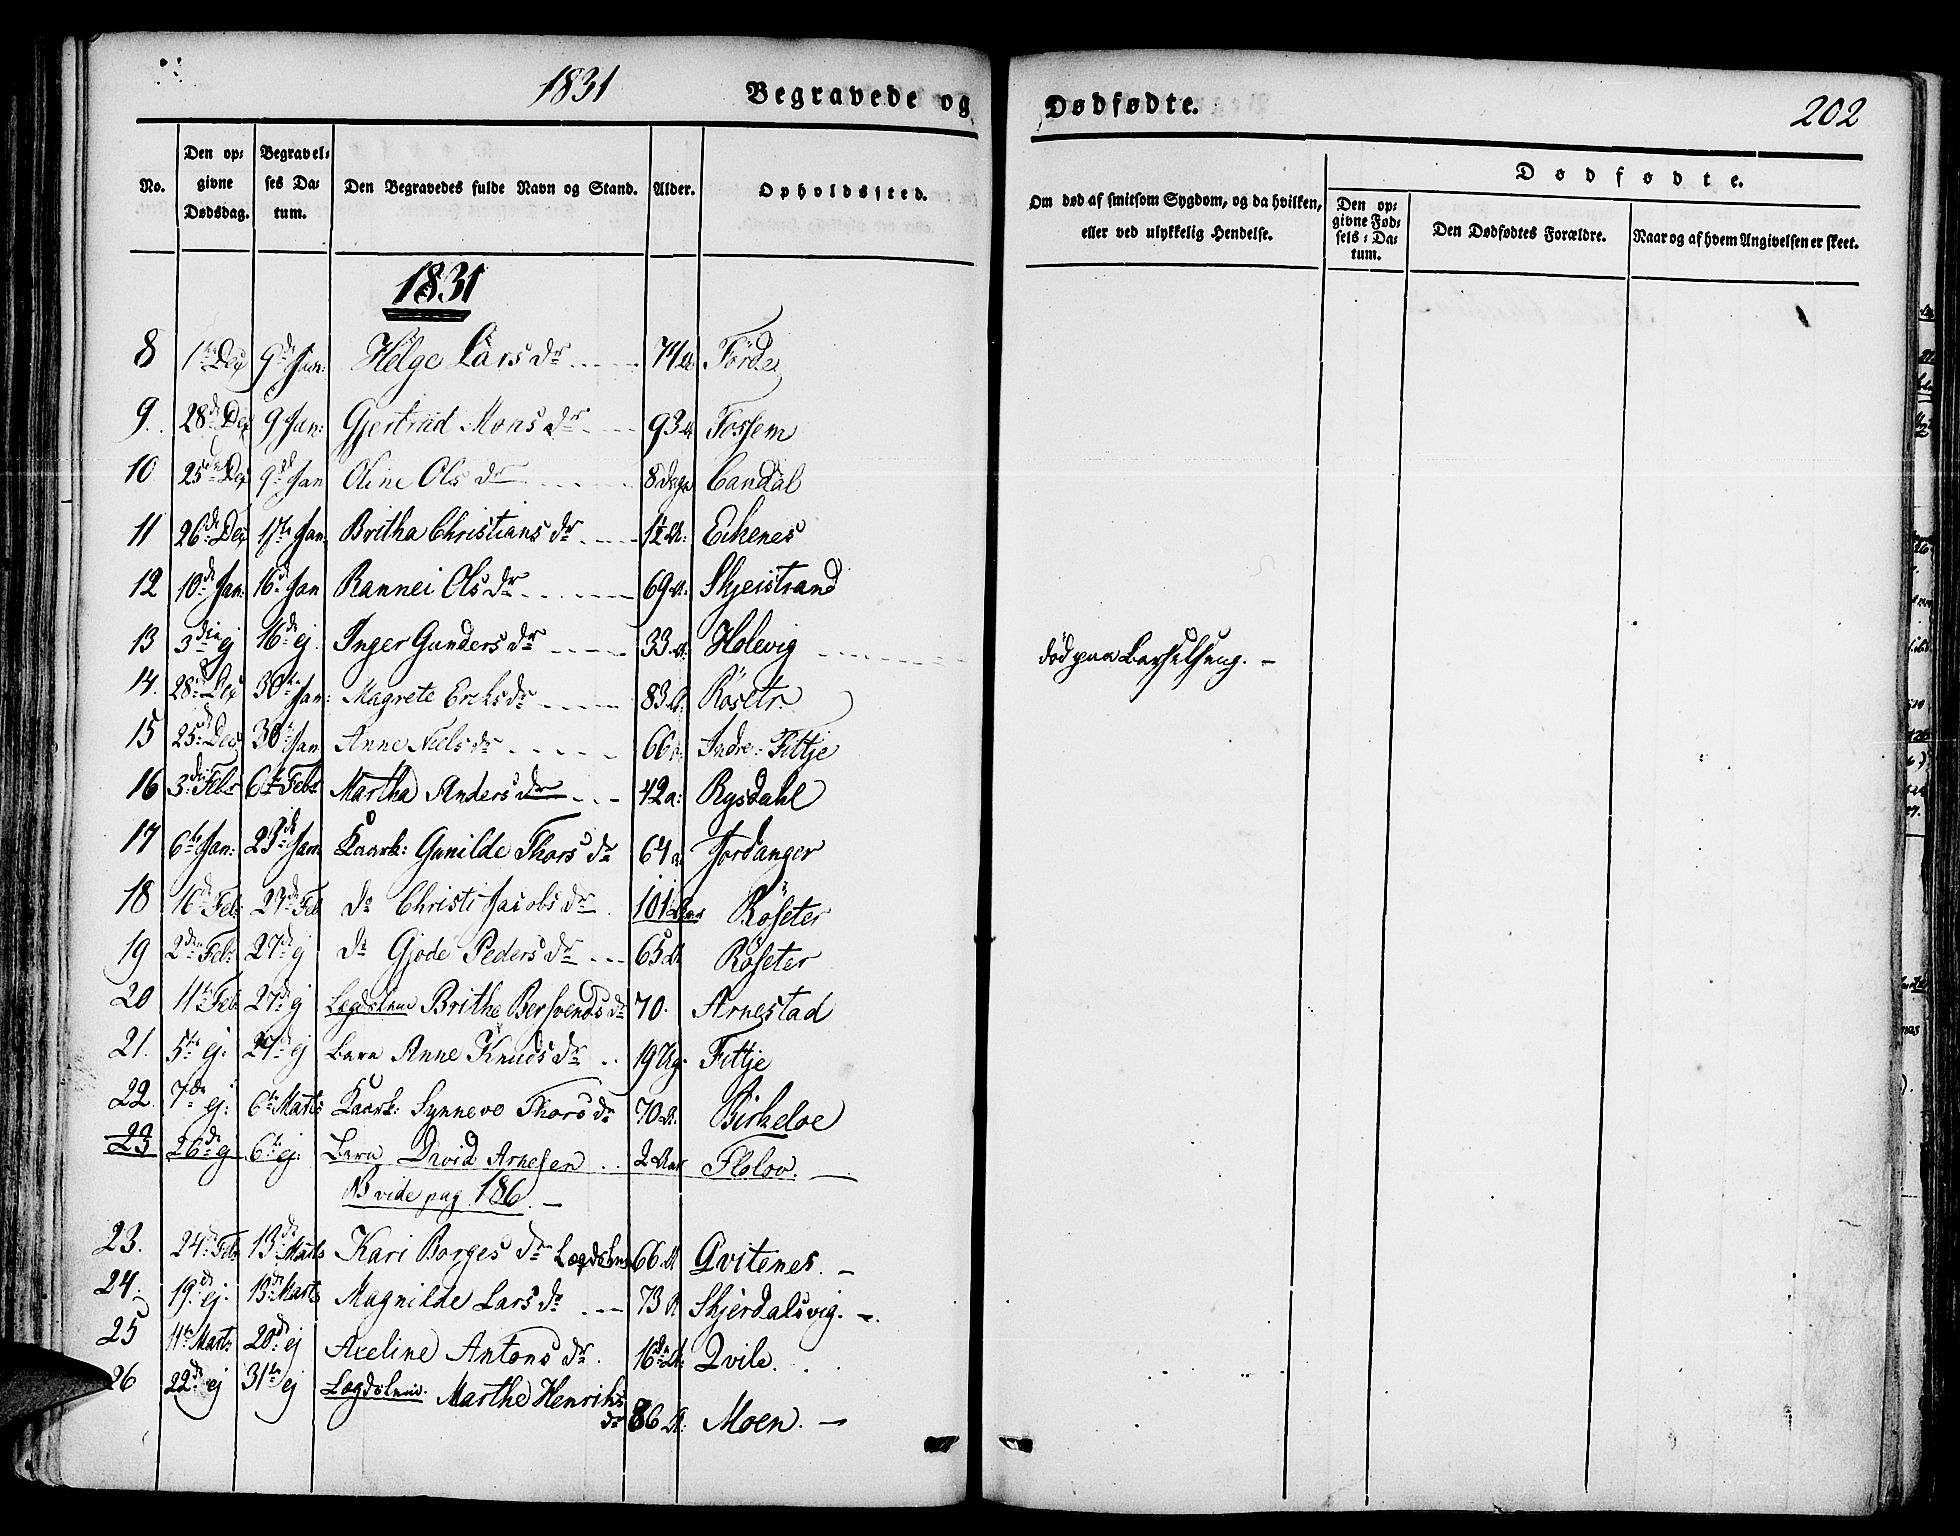 1831 Begravede og Dødfødte. 202
No. Den opgivne Dødsdag. Begravelses Datum. Den Begravedes fulde Navn og Stand. Alder. Opholdssted. Om død af smitsom Sygdom, og da hvilken, eller ved ulykkelig Hendelse. Dødfødte.
Den opgivne Fødsels-Datum. Den Dødfødtes Forældre. Naar og af hvem Angivelsen er skeet.
1831
8 1te Dec 9de Jan: Helge Lars dr 74 A Förde
9. 28de Dec 9 Jan: Gjertrud Mons dr 93 A Fossem
10 25de Dec 9de Jan Oline Ols dr 8 dage Candal
11 26de Dec Jan Britha Christians dr 1½ A: Eikenes
12 10de Jan: 16d Jan Rannei Ols dr 69 A: Skjeistrand
13 3die ej 16de ej. Inger Gunders dr 33 A: Holevig död paa Barselseng. -
14. 28d Dec 30te Jan: Magrete Eriks dr 83 A: Rösetr.
15 25d Dec 30te Jan Anne Niels dr 66 a: Indre: Fittje
16 3die Febr 6te Febr Martha Anders dr 42 a: Rygdahl
17 6te Jan: 23de Jan: Kaark: Gunilde Thors dr 64 a Jordanger
18 16de Feb 27de Feb do Christi Jacobs dr 101 Aar Röseter
19 2den Feb: 27de ej do Gjöde Peders dr 65 A Röseter
20 11te Feb 27de ej Lægdslem Brithe Bersvends dr 70. Arnestad
21. 5te ej: 27de ej Barn Anne Knuds dr 19 Ug: Fittje
22. 7de ej: 6te Marts Kaark: Synneve Thors dr 70 A: Birkeloe
23 26de ej 6te ej. Barn David Arnesen 2 Aar Flolov. -
NB vide pag 186. -
23. 24de Feb 13de Marts Kari Borges dr Lægdslem 66 A Qvitenes. -
24. 19de ej: 13de Marts Magnilde Lars dr 73 A Skjerdalsvig. -
25 11te Marts 20de ej Axeline Antons dr. Qvile.
26 22de ej 31te ej Lægdslem. Marthe Henriks dr 86 A: Moen. -